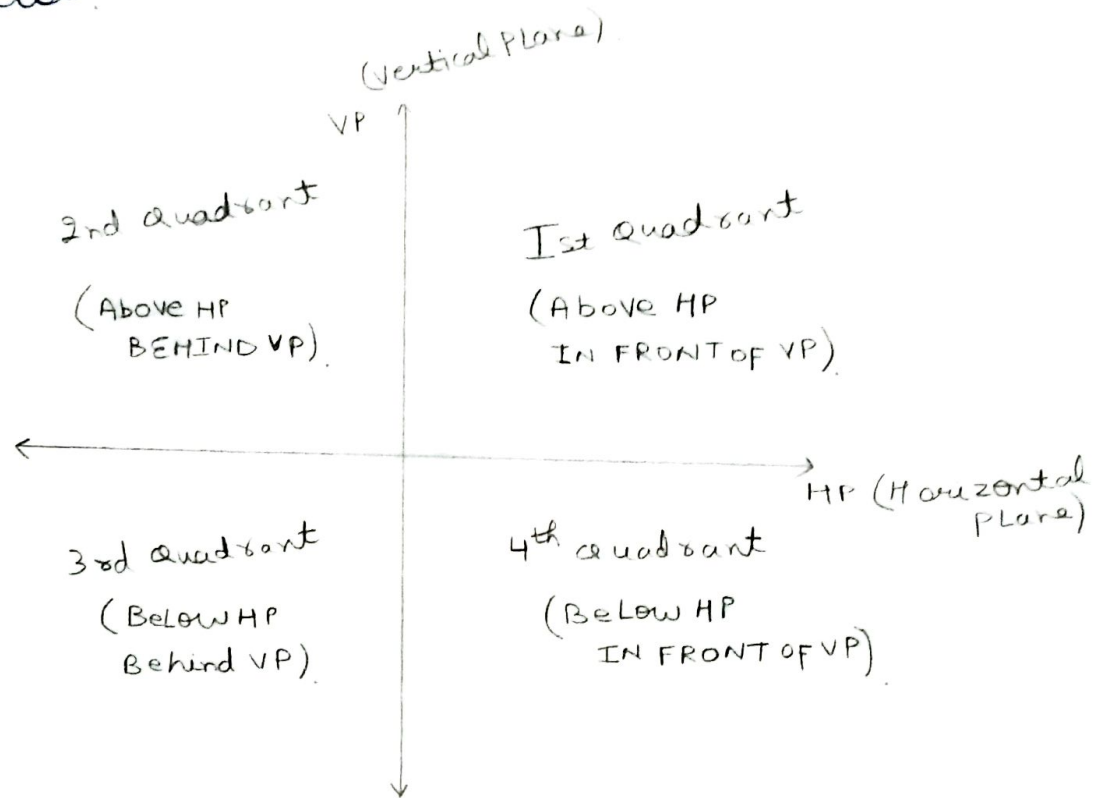 (Vertical Plane)
VP
2nd Quadrant
(Above HP
BEHIND VP).
Ist Quadrant
(Above HP
IN FRONT OF VP).
HP (Horizontal
Plane)
3rd Quadrant
(Below HP
Behind VP).
4th Quadrant
(Below HP
IN FRONT OF VP).